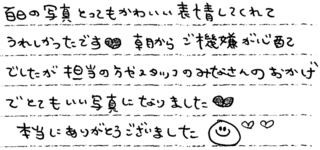 百日の写真とってもかわいい表情してくれて
うれしかったです♥ 朝から ご機嫌が心配
でしたが 担当の方やスタッフのみなさんのおかげ
でとてもいい写真になりました♥
本当にありがとうございました ☺♡♡